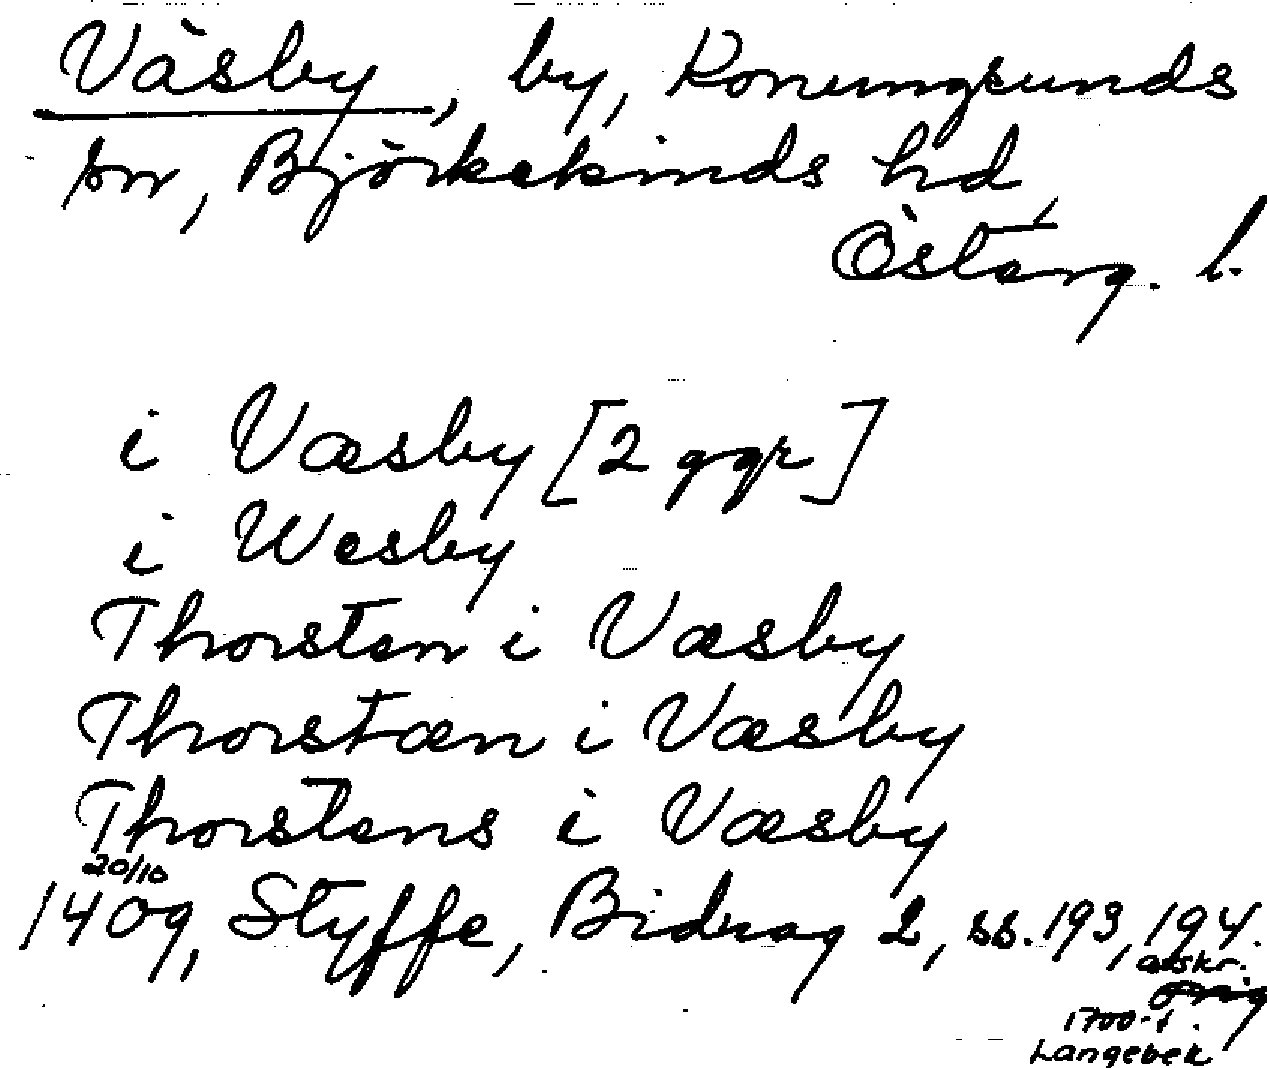 Väsby, by, Konungsunds
sn, Björkekinds hd,
Österg. l.
i Væsby [2 ggr]
i Wesby
Thorsten i Væsby
Thorstæn i Væsby
Thorstens i Væsby
20/10
1409, Styffe, Bidrag 2, ss. 193, 194.
avskr.
orig
1700-t.
Langebek